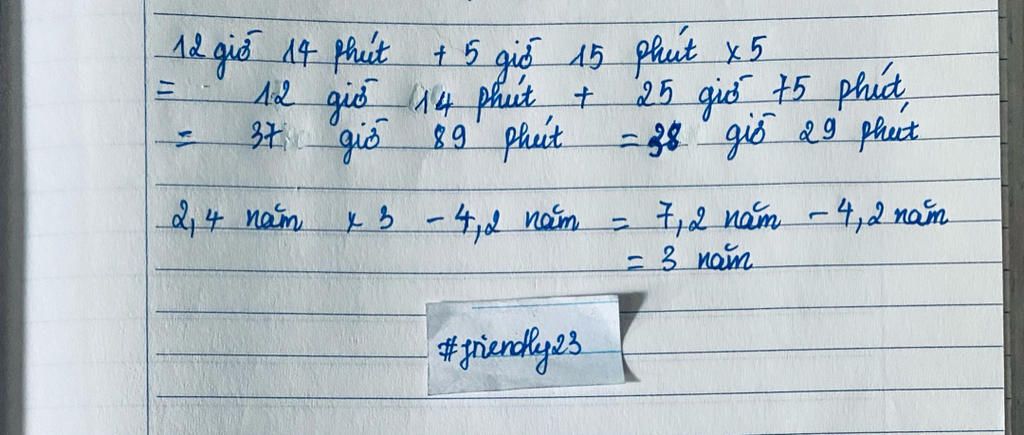 12 giờ 14 phút + 5 giờ 15 phút x 5
= 12 giờ 14 phút + 25 giờ 75 phút
= 37 giờ 89 phút = 38 giờ 29 phút
2,4 năm x 3 - 4,2 năm = 7,2 năm - 4,2 năm
= 3 năm
#friendly23